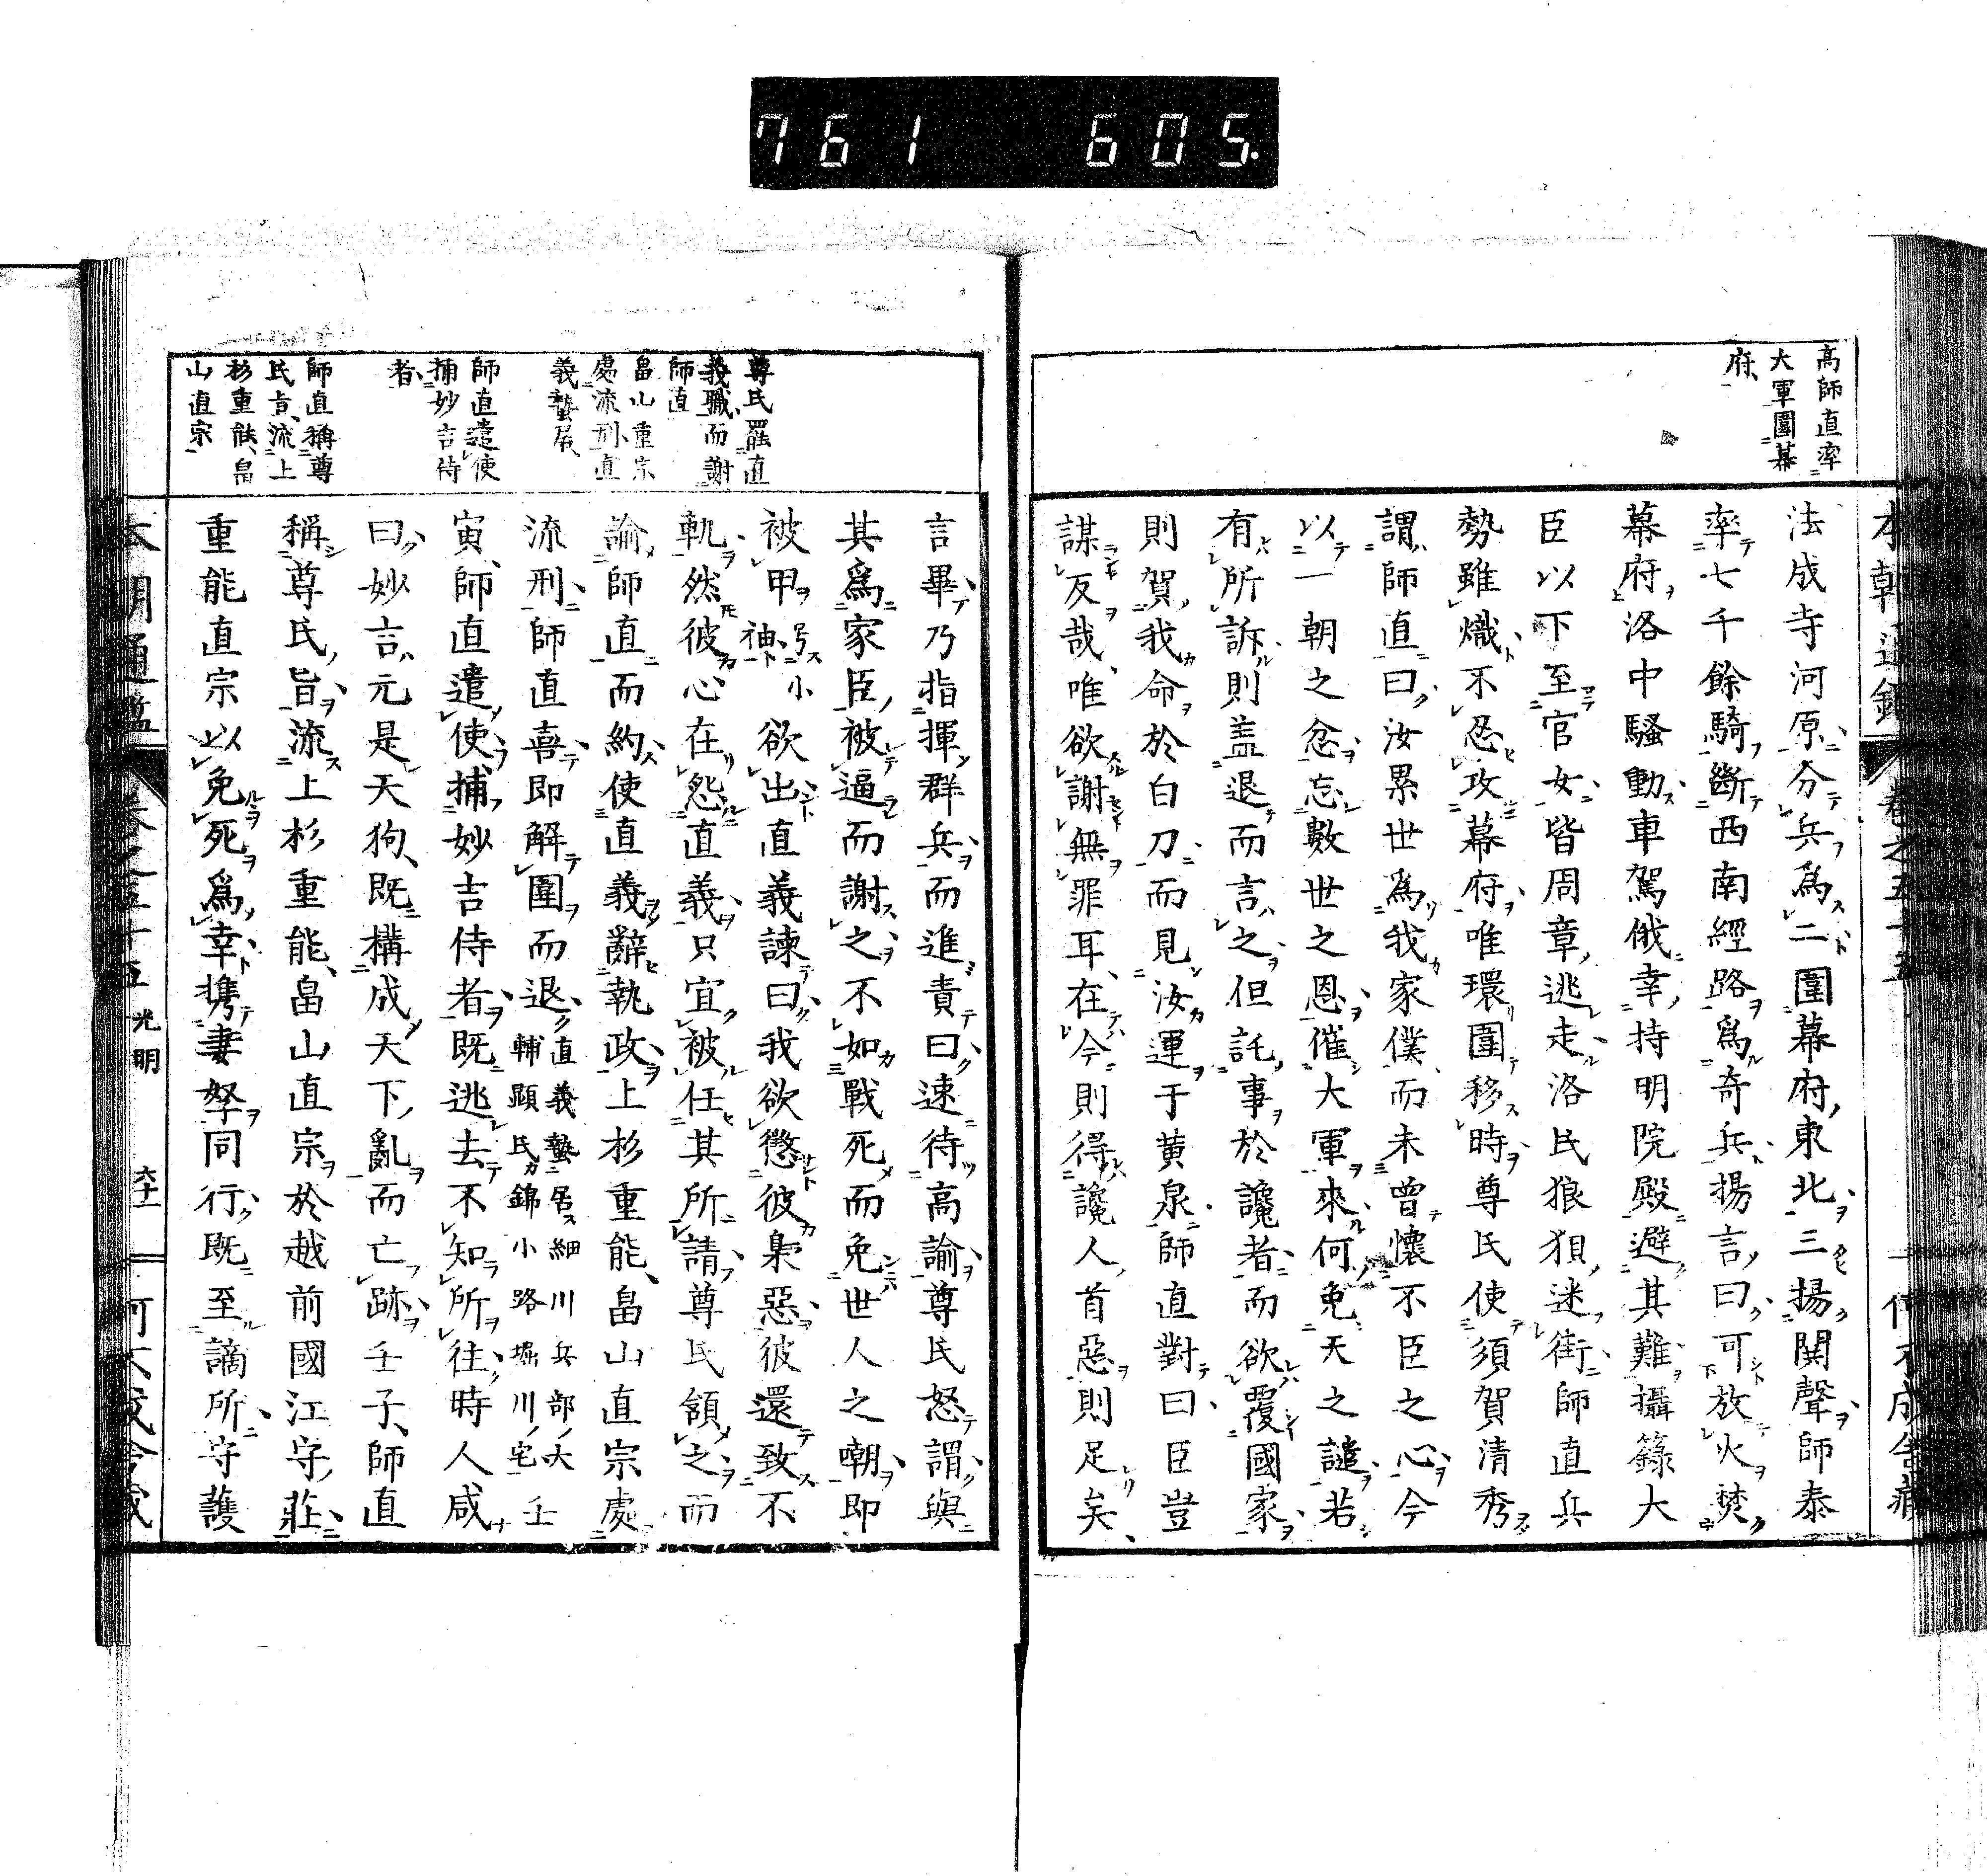 761 605.
高師直率
大軍圍幕
府
法成寺河原分兵爲二圍幕府東北三揚鬨聲師泰
率七千餘騎斷西南經路爲奇兵揚言曰可放火焚
幕府洛中騷動車駕俄幸持明院殿避其難攝籙大
臣以下至官女皆周章逃走洛民狼狽迷街師直兵
勢雖熾不忍攻幕府唯環圍移時尊氏使須賀清秀
謂師直曰汝累世爲我家僕而未曾懷不臣之心今
以一朝之忿忘數世之恩催大軍來何免天之譴若
有所訴則盖退而言之但託事於讒者而欲覆國家
則賀我命於白刀而見汝運于黄泉師直對曰臣豈
謀反哉唯欲謝無罪耳在今則得讒人首惡則足矣
尊氏罷直
義職而謝
師直
畠山重宗
處流刑直
義蟄居
師直遣使
捕妙吉侍
者
師直稱尊
氏旨流上
杉重能畠
山直宗
言畢乃指揮群兵而進責曰速待高諭尊氏怒謂與
其爲家臣被逼而謝之不如戰死而免世人之嘲即
被甲号小袖欲出直義諫曰我欲懲彼梟惡彼還致不
軌然彼心在怨直義只宜被任其所請尊氏頷之而
諭師直而約使直義辭執政上杉重能畠山直宗處
流刑師直喜即解圍而退直義蟄居細川兵部大輔顕氏錦小路堀川宅壬
寅師直遣使捕妙吉侍者既逃去不知所往時人咸
曰妙言元是天狗既構成天下亂而亡跡壬子師直
稱尊氏旨流上杉重能畠山直宗於越前國江守莊
重能直宗以免死爲幸携妻孥同行既至謫所守護
本朝通鑑 卷之五十五 光明 六十一 可不成舍藏